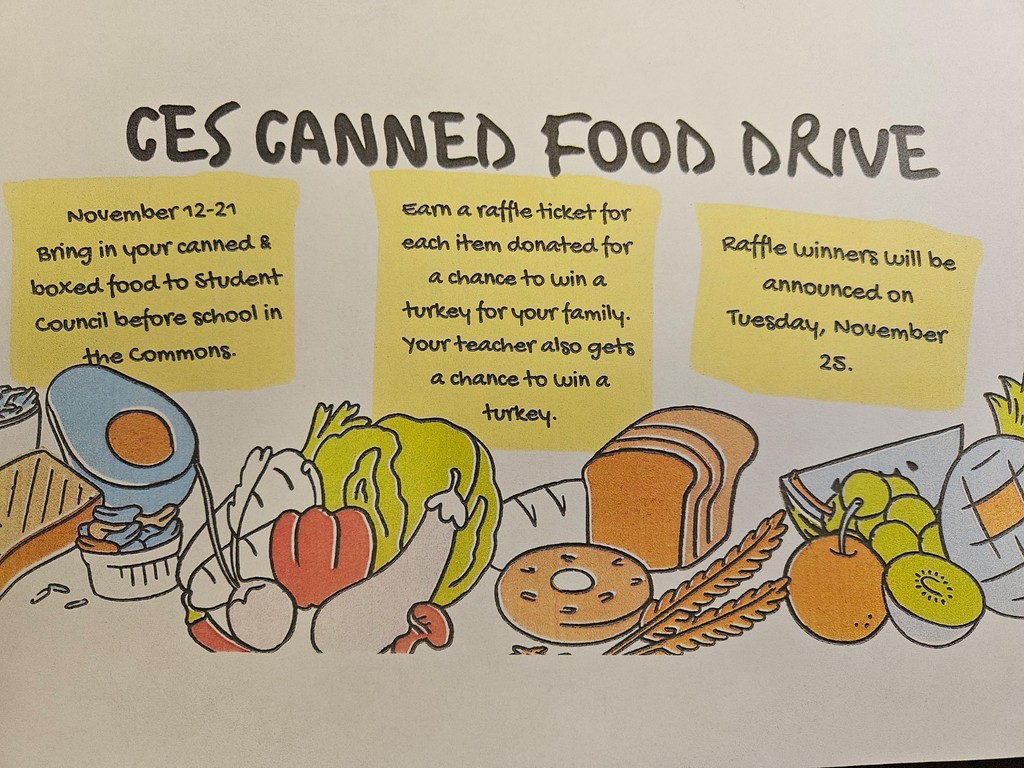 CES CANNED FOOD DRIVE
November 12-21
Bring in your canned &
boxed food to Student
Council before school in
the Commons.
Earn a raffle ticket for
each item donated for
a chance to win a
turkey for your family.
Your teacher also gets
a chance to win a
turkey.
Raffle winners will be
announced on
Tuesday, November
25.